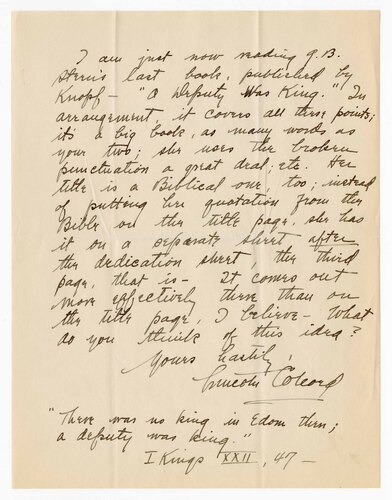 I am just now reading G.B.
Stern's last book, published by
Knopf - "A Deputy Was King." In
arrangement, it covers all these points;
it's a big book, as many words as
your two; she uses the broken
punctuation a great deal; etc. Her
title is a Biblical one, too; instead
of putting her quotation from the
Bible on the title page, she has
it on a separate sheet after
the dedication sheet the third
page, that is - It comes out
more effectively there than on
the title page, I believe - What
do you think of this idea?
Yours hastily,
Lincoln Colcord
"There was no king in Edom then;
a deputy was king."
I Kings XXII, 47 -